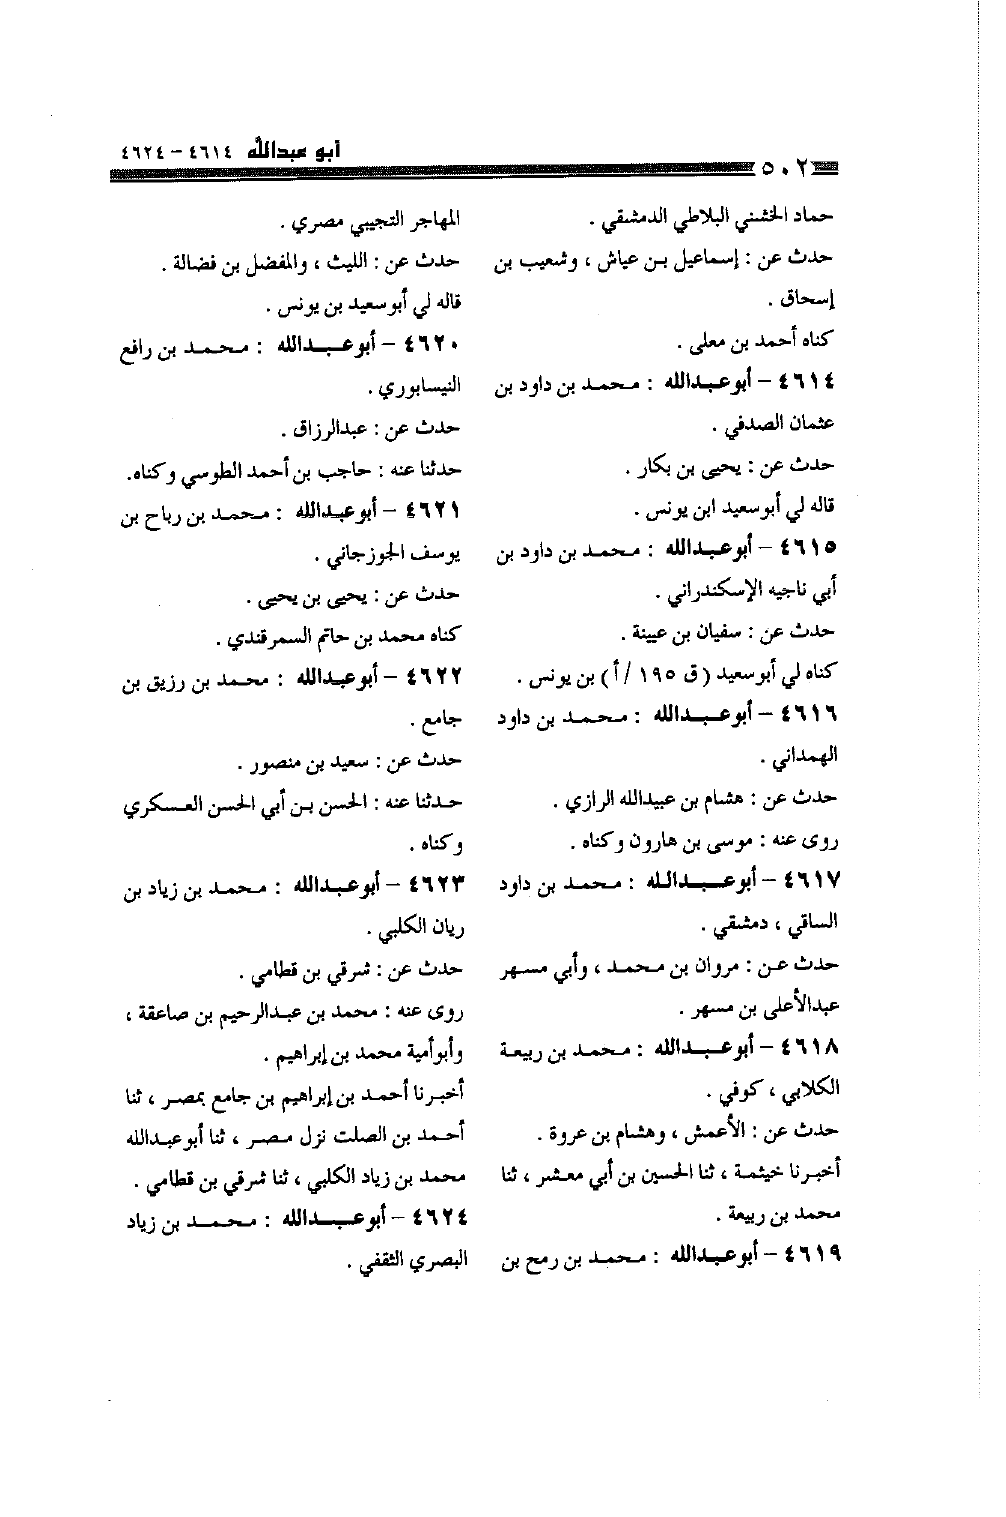 أبو عبدالله ٤٦١٤ - ٤٦٢٤
٥٠٢
حماد الخشني البلاطي الدمشقي .
حدث عن : إسماعيل بن عياش ، وشعيب بن
إسحاق .
كناه أحمد بن معلى .
٤٦١٤ - أبو عبدالله : محمد بن داود بن
عثمان الصدفي .
حدث عن : يحيى بن بكار .
قاله لي أبو سعيد ابن يونس .
٤٦١٥ - أبو عبدالله : محمد بن داود بن
أبي ناجيه الإسكندراني .
حدث عن : سفيان بن عيينة .
كناه لي أبو سعيد (ق ١٩٥ / أ) بن يونس .
٤٦١٦ - أبو عبدالله : محمد بن داود
الهمداني .
حدث عن : هشام بن عبيدالله الرازي .
روى عنه : موسى بن هارون وكناه .
٤٦١٧ - أبو عبدالله : محمد بن داود
الساقي ، دمشقي .
حدث عن : مروان بن محمد ، وأبي مسهر
عبدالأعلى بن مسهر .
٤٦١٨ - أبو عبدالله : محمد بن ربيعة
الكلابي ، كوفي .
حدث عن : الأعمش ، وهشام بن عروة .
أخبرنا خيثمة ، ثنا الحسين بن أبي معشر ، ثنا
محمد بن ربيعة .
٤٦١٩ - أبو عبدالله : محمد بن رمح بن
المهاجر التجيبي مصري .
حدث عن : الليث ، والمفضل بن فضالة .
قاله لي أبو سعيد بن يونس .
٤٦٢٠ - أبو عبدالله : محمد بن رافع
النيسابوري .
حدث عن : عبدالرزاق .
حدثنا عنه : حاجب بن أحمد الطوسي وكناه.
٤٦٢١ - أبو عبدالله : محمد بن رباح بن
يوسف الجوزجاني .
حدث عن : يحيى بن يحيى .
كناه محمد بن حاتم السمرقندي .
٤٦٢٢ - أبو عبدالله : محمد بن رزيق بن
جامع .
حدث عن : سعيد بن منصور .
حدثنا عنه : الحسن بن أبي الحسن العسكري
وكناه .
٤٦٢٣ - أبو عبدالله : محمد بن زياد بن
ريان الكلبي .
حدث عن : شرقي بن قطامي .
روى عنه : محمد بن عبدالرحيم بن صاعقة ،
وأبو أمية محمد بن إبراهيم .
أخبرنا أحمد بن إبراهيم بن جامع بمصر ، ثنا
أحمد بن الصلت نزل مصر ، ثنا أبو عبدالله
محمد بن زياد الكلبي ، ثنا شرقي بن قطامي .
٤٦٢٤ - أبو عبدالله : محمد بن زياد
البصري الثقفي .